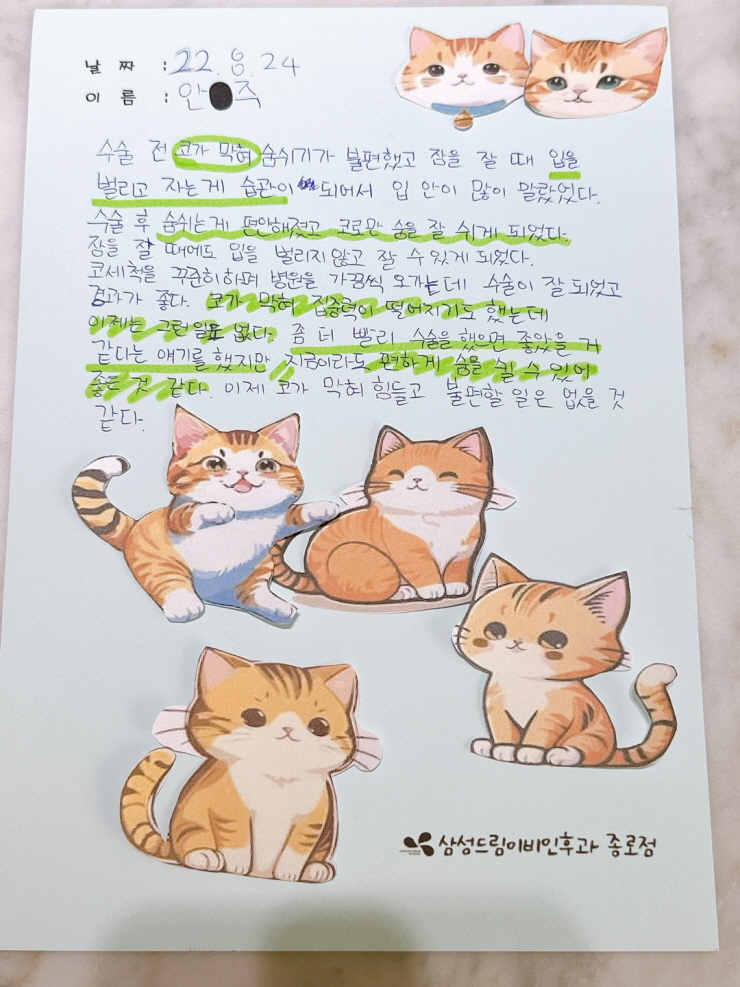 날 짜 : 22. 8. 24
이 름 : 안 주
수술 전 코가 막혀 숨쉬기가 불편했고 잠을 잘 때 입을
벌리고 자는게 습관이 되어서 입 안이 많이 말랐었다.
수술 후 숨쉬는게 편안해졌고 코로만 숨을 잘 쉬게 되었다.
잠을 잘 때에도 입을 벌리지 않고 잘 수 있게 되었다.
코세척을 꾸준히하며 병원을 가끔씩 오가는데 수술이 잘 되었고
경과가 좋다. 코가 막혀 집중력이 떨어지기도 했는데
이제는 그런 일도 없다. 좀 더 빨리 수술을 했으면 좋았을 거
같다는 얘기를 했지만 지금이라도 편하게 숨을 쉴 수 있어
좋은 것 같다. 이제 코가 막혀 힘들고 불편할 일은 없을 것
같다.
삼성드림이비인후과 종로점